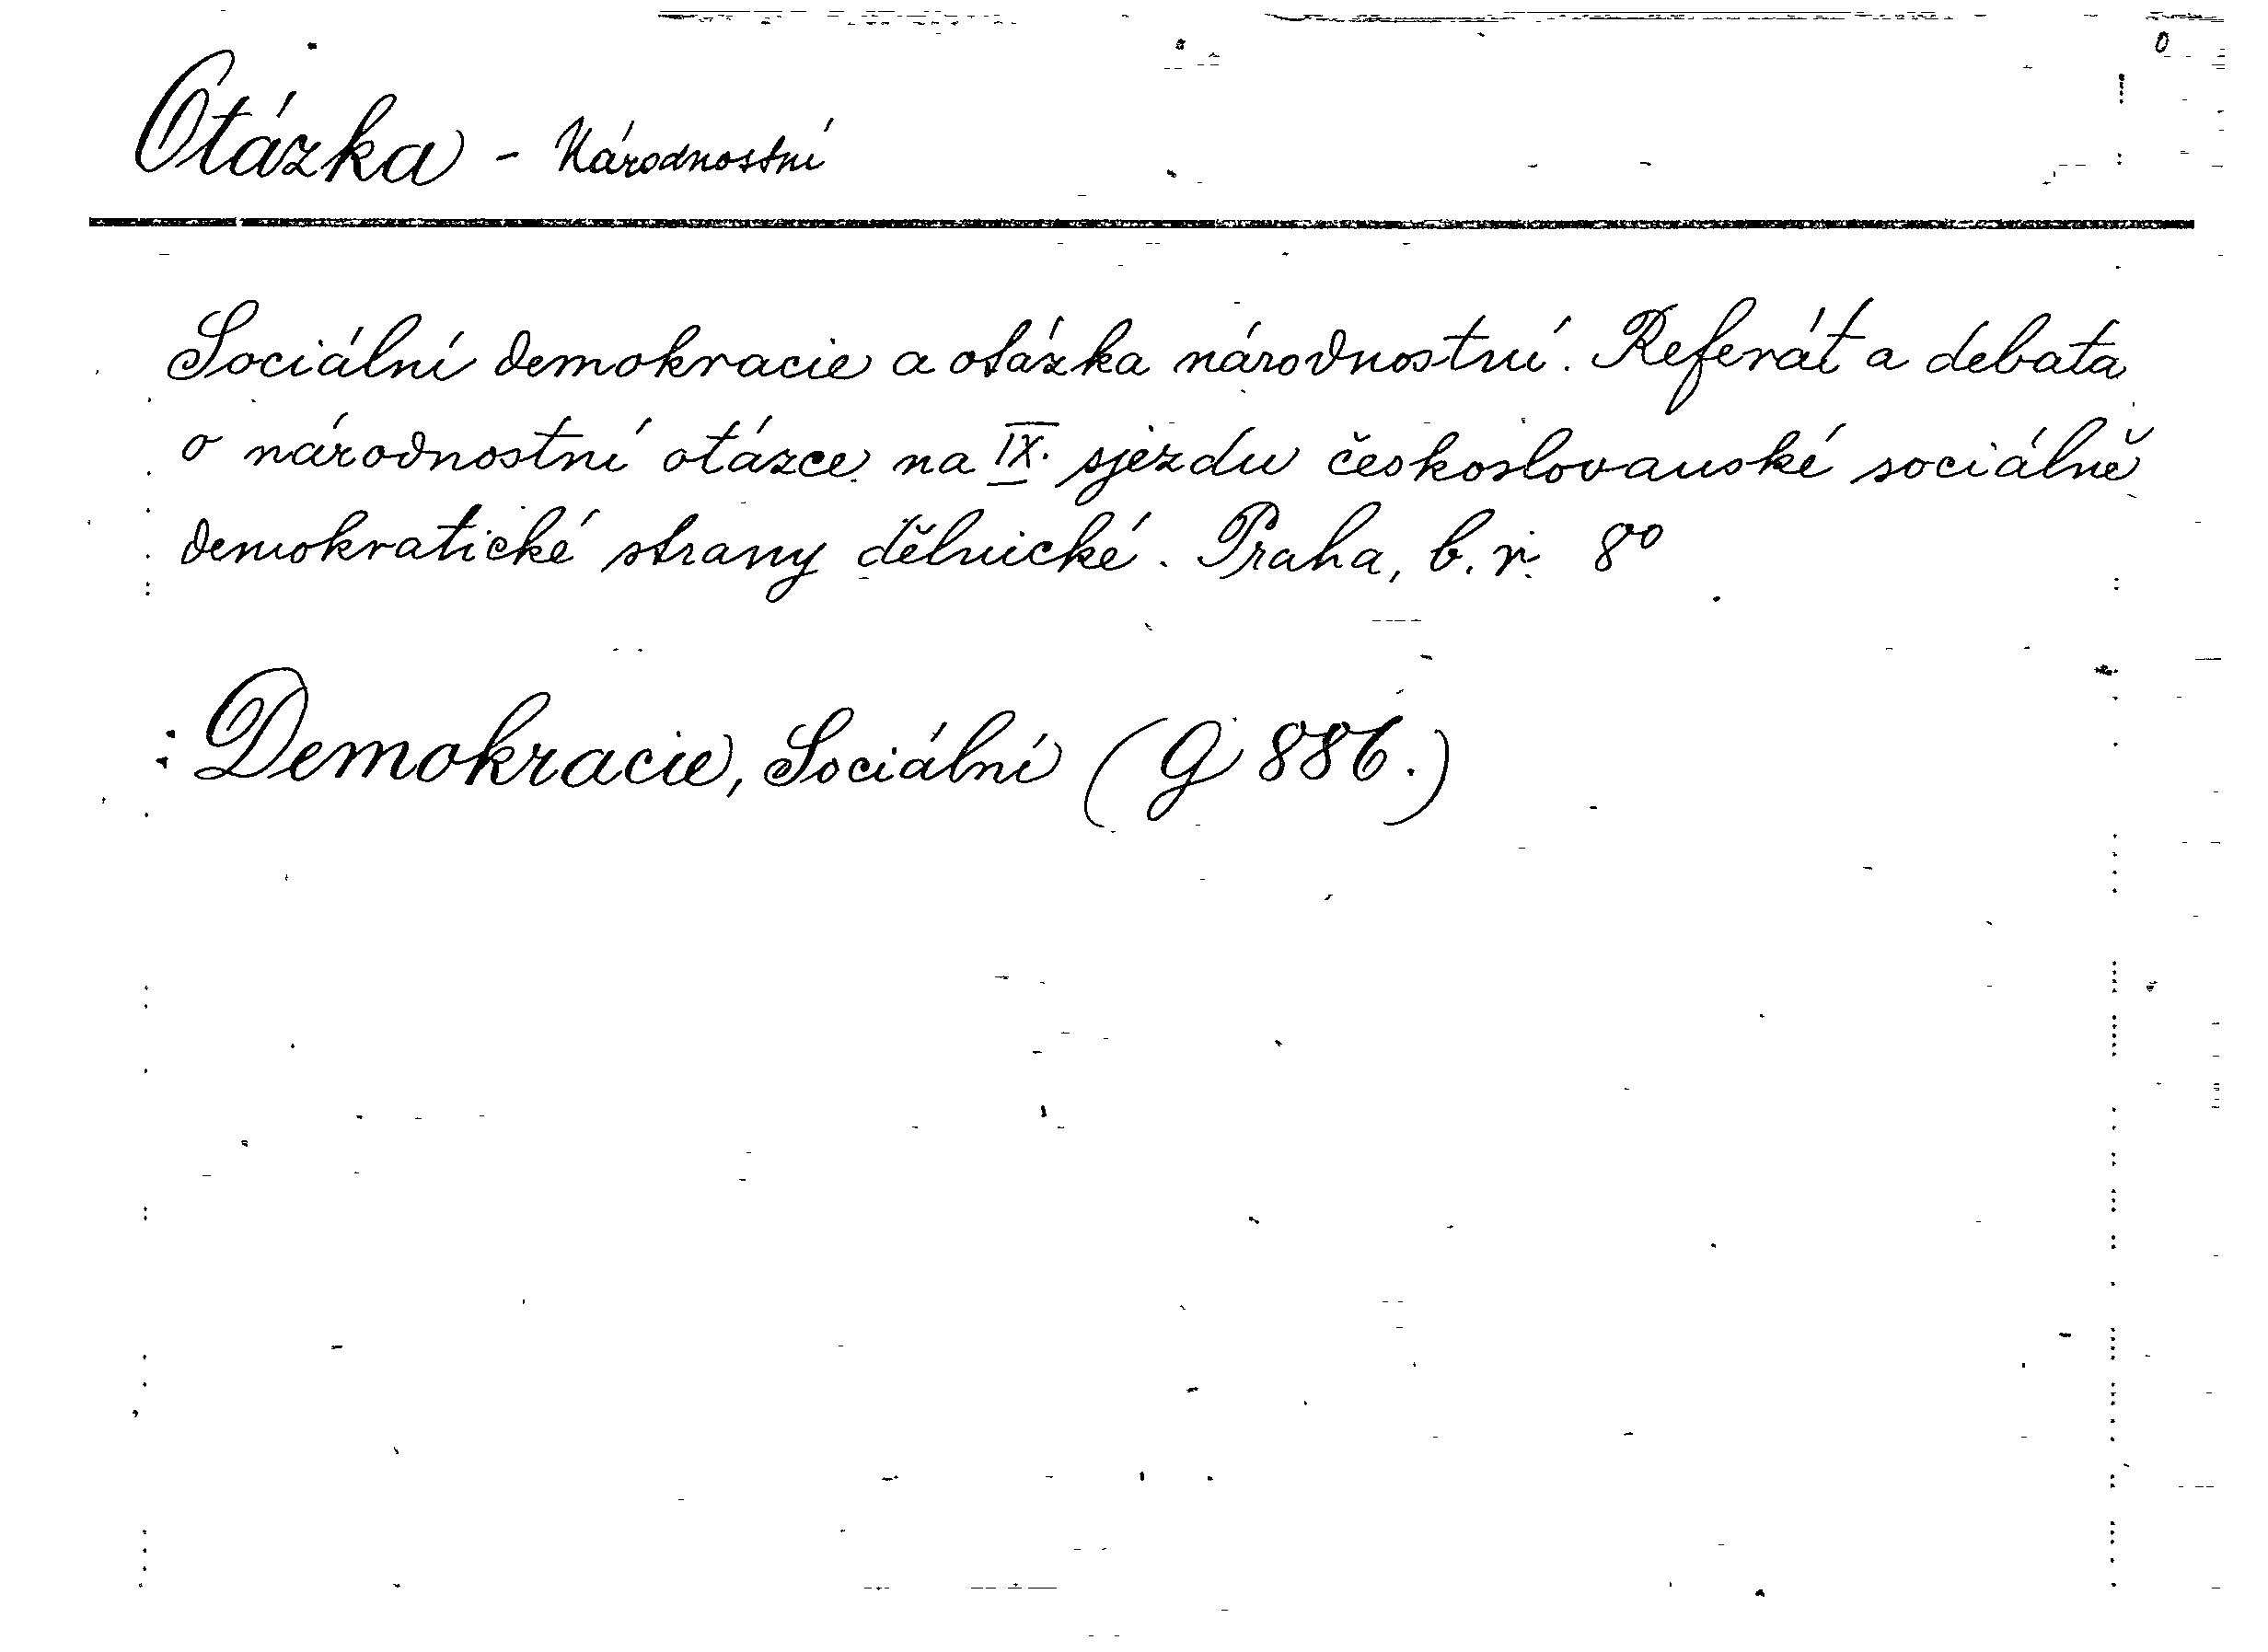 Otázka - Národnostní
Sociální demokracie a otázka národnostní. Referát a debata
o národnostní otázce na IX. sjezdu českoslovanské sociálně
demokratické strany dělnické. Praha, b. r. 8°
: Demokracie, Sociální (G 886.)